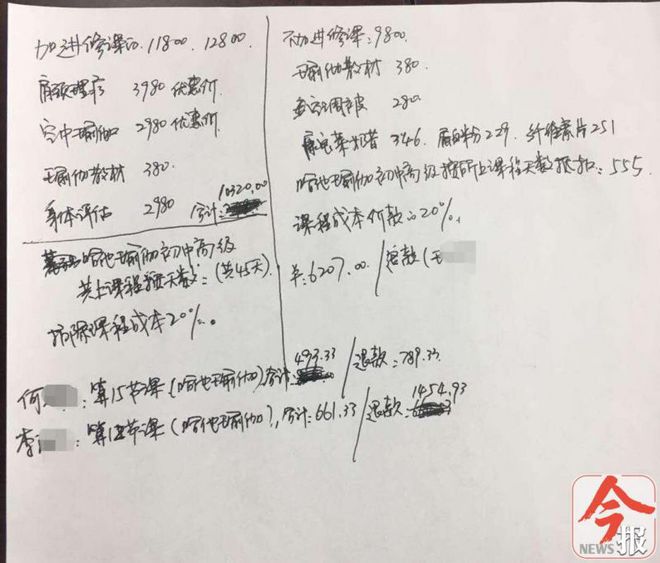 加进修课 11800. 12800.
肩颈理疗 3980 优惠价.
空中瑜伽 2980 优惠价.
瑜伽教材 380.
身体评估 2980 合计: 10320.00
哈他瑜伽初中高级
共上课程天数: (共45天)
扣除课程成本20%.
不加进修课: 9800.
瑜伽教材 380.
280
346. 蛋白粉229. 纤维素片251
哈他瑜伽初中高级按所上课程天数抵扣: 555.
课程成本扣款 20%.
6207.00 / 退款(王
何 : 算15节课 (哈他瑜伽) 合计: 493.33 / 退款: 789.33
李 : 算 节课 (哈他瑜伽), 合计: 661.33 / 退款: 1454.93
今报
NEWS